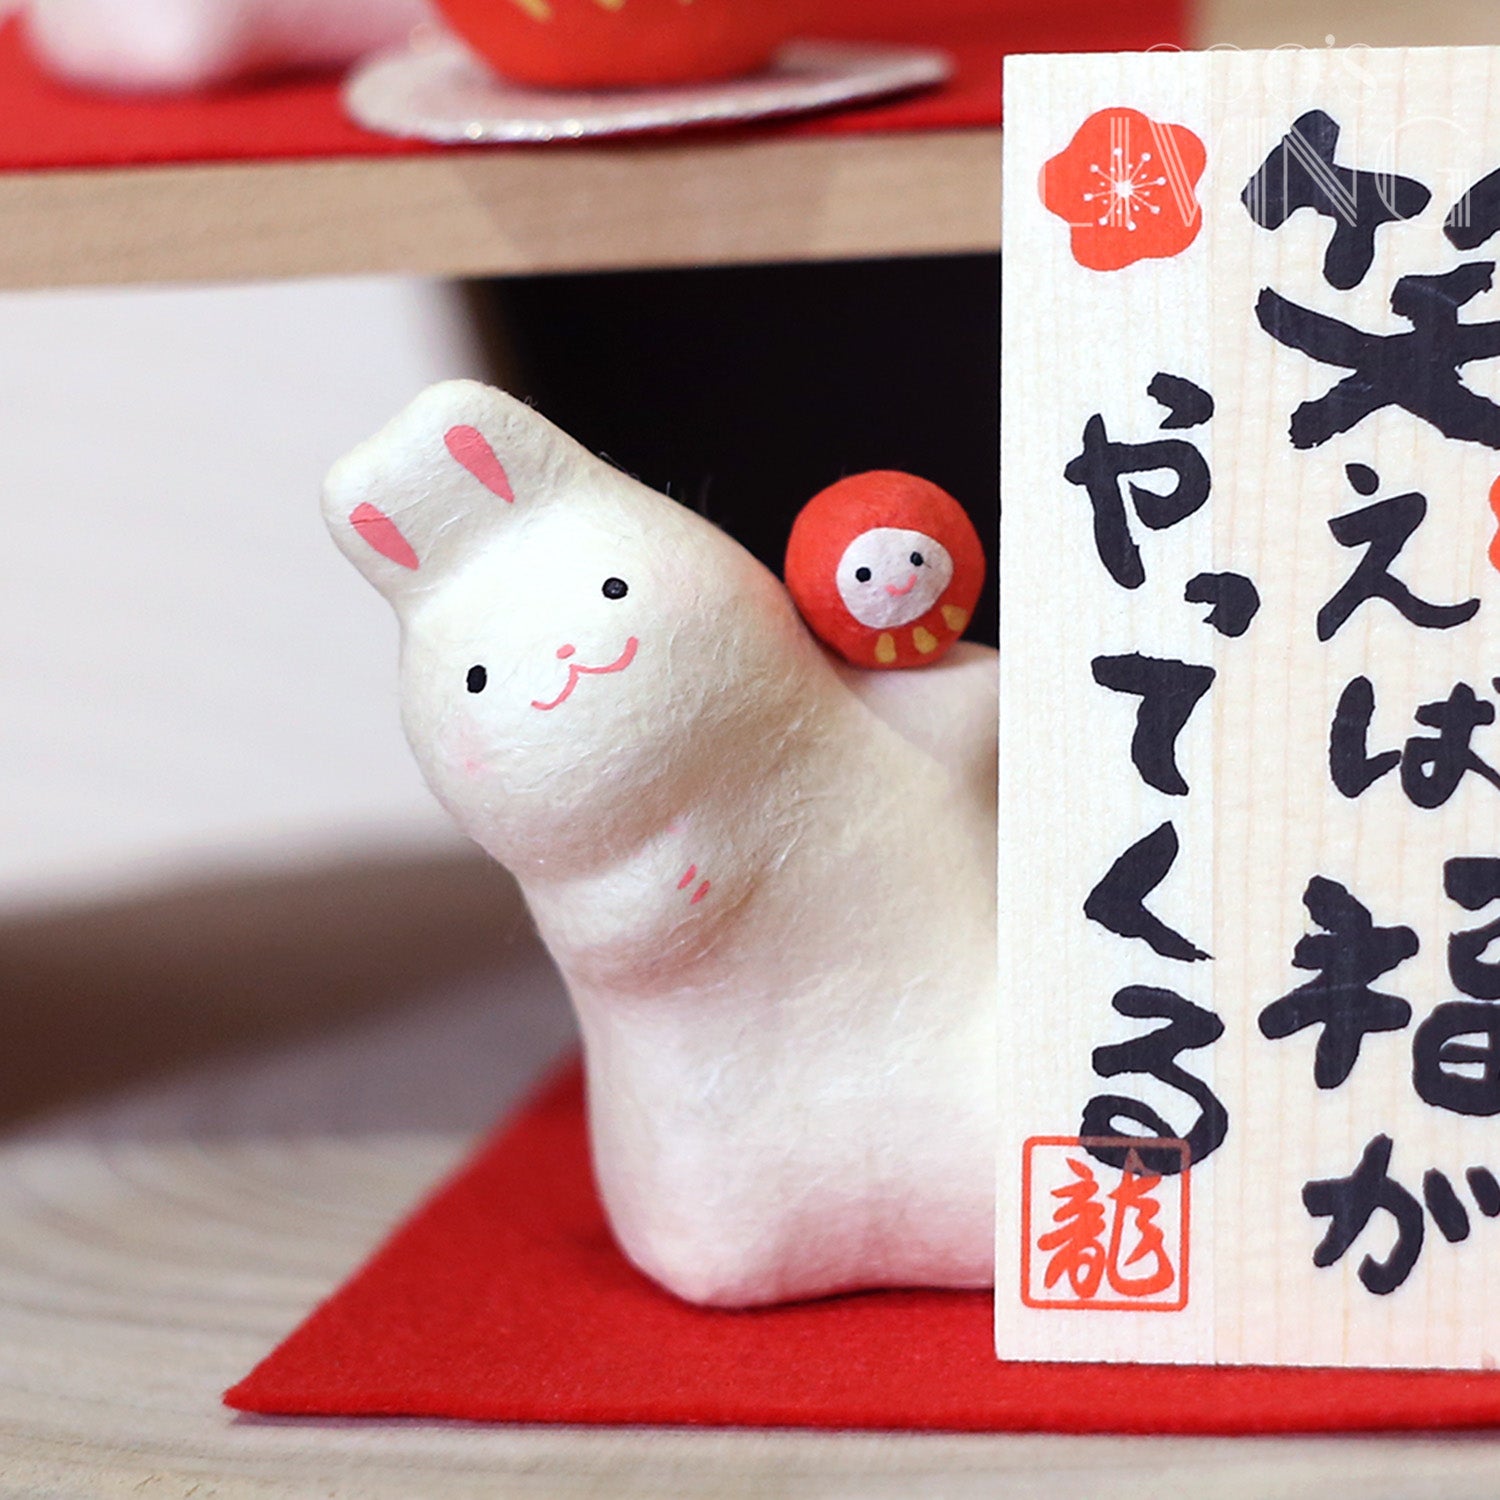 笑えば福が
やってくる
龍
coco's
LIVING